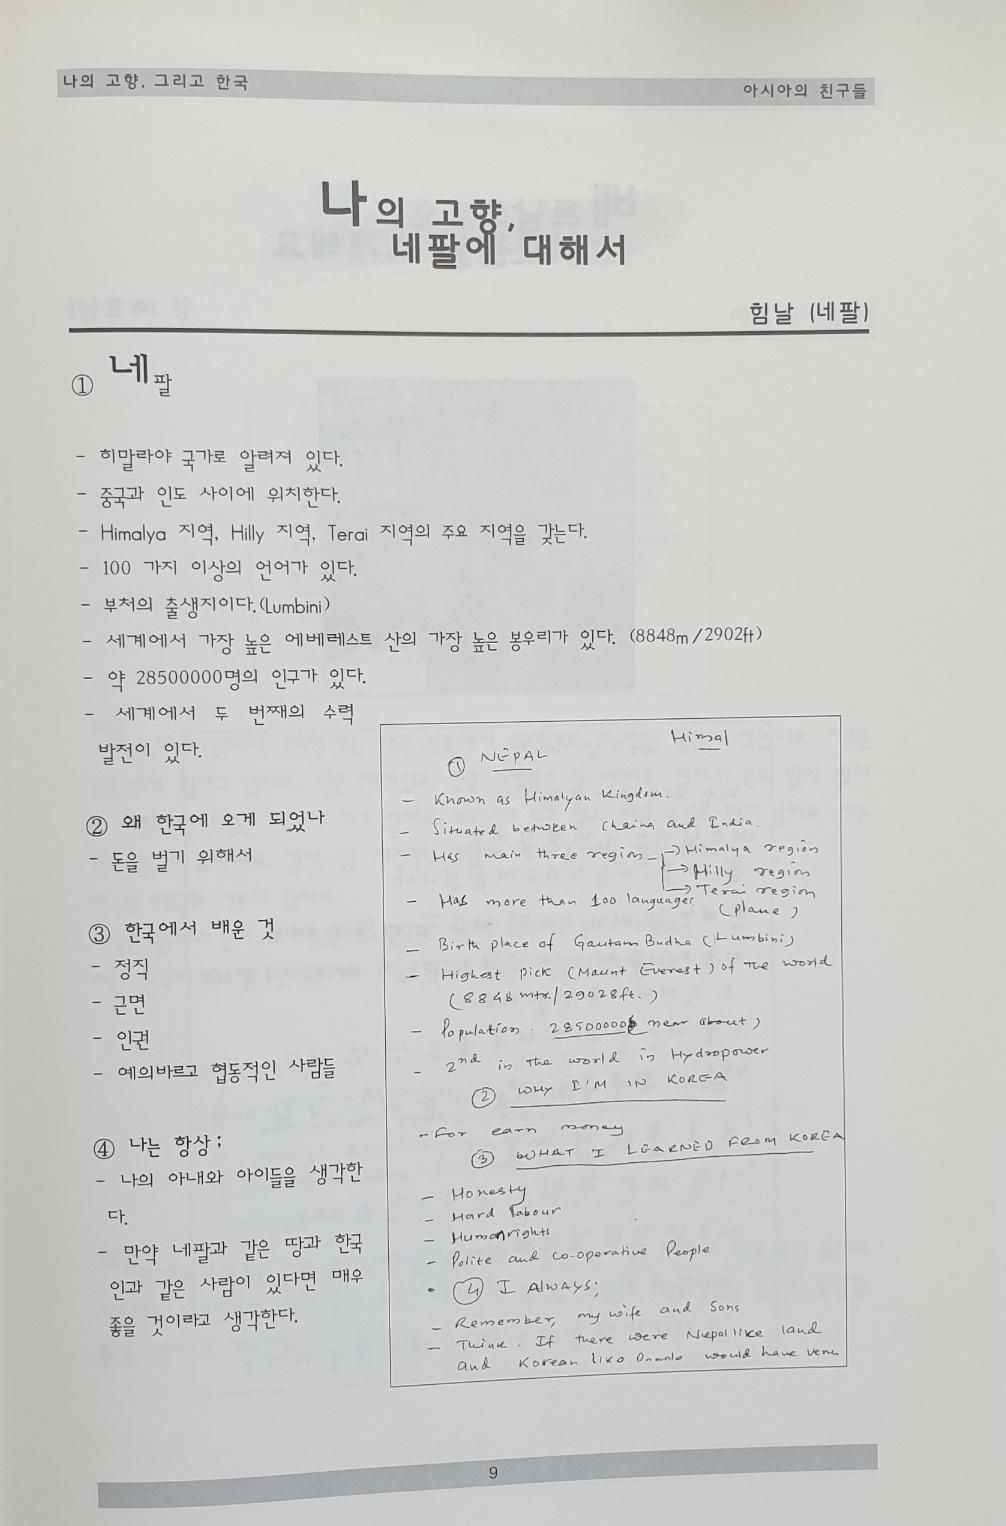 나의 고향, 그리고 한국
아시아의 친구들
나의 고향,
네팔에 대해서
힘날 (네팔)
① 네팔
- 히말라야 국가로 알려져 있다.
- 중국과 인도 사이에 위치한다.
- Himalya 지역, Hilly 지역, Terai 지역의 주요 지역을 갖는다.
- 100 가지 이상의 언어가 있다.
- 부처의 출생지이다.(Lumbini)
- 세계에서 가장 높은 에베레스트 산의 가장 높은 봉우리가 있다. (8848m/2902ft)
- 약 28500000명의 인구가 있다.
- 세계에서 두 번째의 수력
발전이 있다.
② 왜 한국에 오게 되었나
- 돈을 벌기 위해서
③ 한국에서 배운 것
- 정직
- 근면
- 인권
- 예의바르고 협동적인 사람들
④ 나는 항상;
- 나의 아내와 아이들을 생각한
다.
- 만약 네팔과 같은 땅과 한국
인과 같은 사람이 있다면 매우
좋을 것이라고 생각한다.
Himal
① NEPAL
- Known as Himalyan Kingdom.
- Situated between Chaina and India.
- Has main three region → Himalya region
→ Hilly region
→ Terai region
- Has more than 100 languages
(plane)
- Birth place of Gautam Budha (Lumbini)
- Highest pick (Maunt Everest) of The world
(8848 mtr./29028ft.)
- Population. 28500000 near about)
- 2nd in The world in Hydropower
② WHY I'M IN KOREA
- For earn money
③ WHAT I LEARNED FROM KOREA
- Honesty
- Hard labour
- Humanrights
- Polite and co-operative People
④ I ALWAYS;
- Remember, my wife and Sons
- Think. If there were Nepal like land
and Korean like would have
9